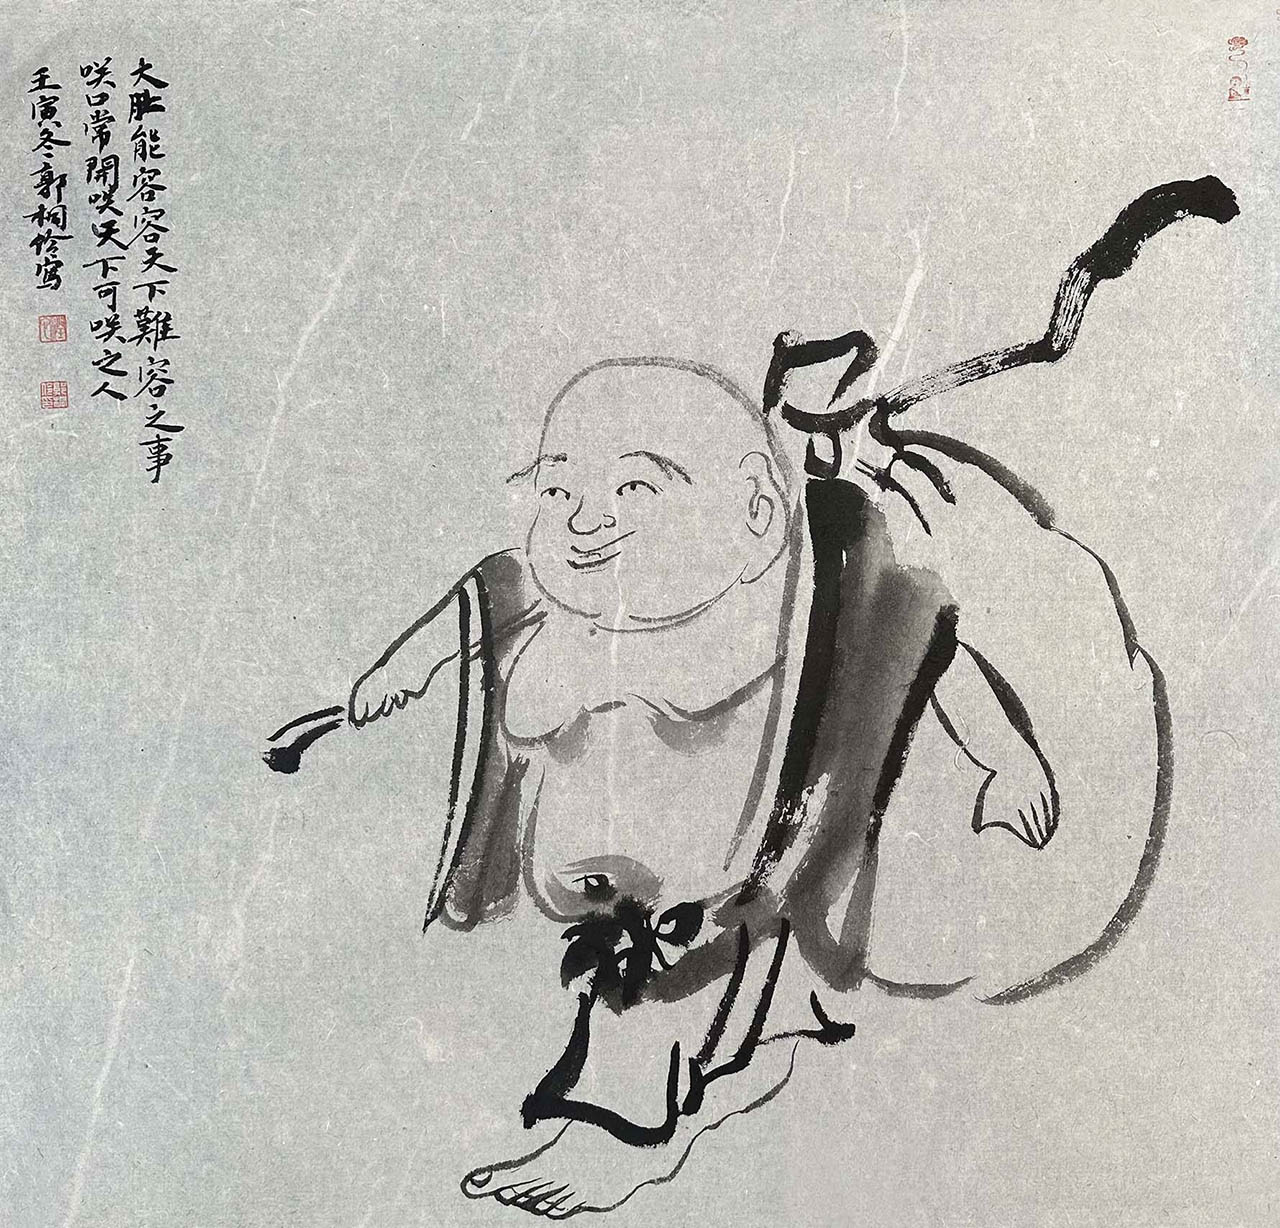 大肚能容容天下難容之事
咲口常開咲天下可咲之人
壬寅冬郭桐伶寫